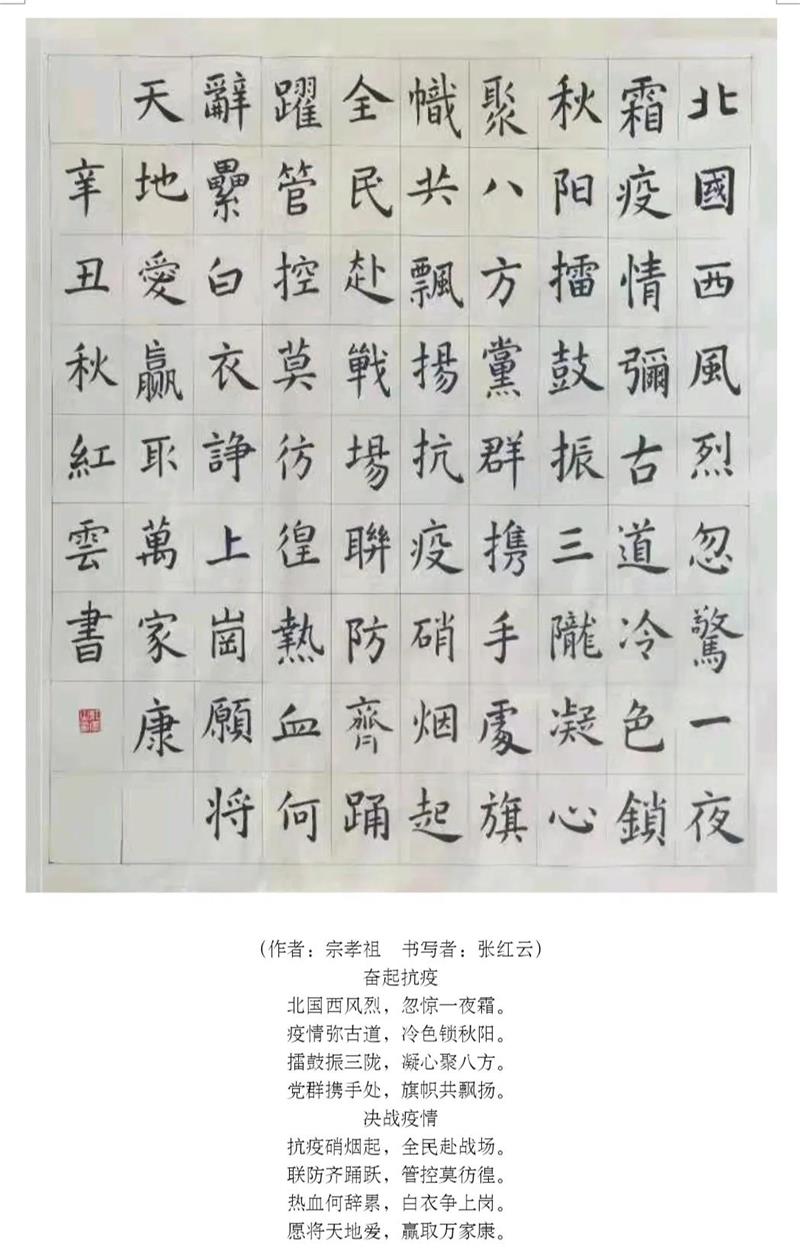 北國西風烈忽驚一夜
霜疫情彌古道冷色鎖
秋阳擂鼓振三隴凝心
聚八方黨群携手處旗
幟共飄揚抗疫硝烟起
全民赴戰場聯防齊踊
躍管控莫彷徨熱血何
辭纍白衣諍上崗願将
天地愛贏取萬家康
辛丑秋紅雲書
（作者：宗孝祖　书写者：张红云）
奋起抗疫
北国西风烈，忽惊一夜霜。
疫情弥古道，冷色锁秋阳。
擂鼓振三陇，凝心聚八方。
党群携手处，旗帜共飘扬。
决战疫情
抗疫硝烟起，全民赴战场。
联防齐踊跃，管控莫彷徨。
热血何辞累，白衣争上岗。
愿将天地爱，赢取万家康。